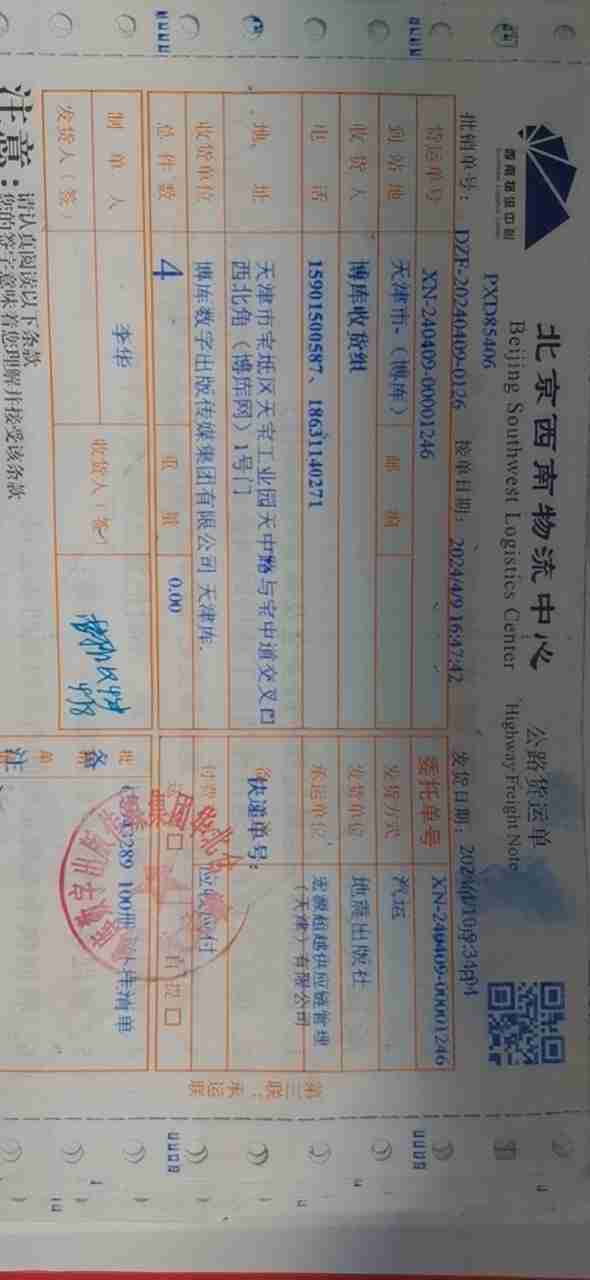 西南物流中心
北京西南物流中心
Beijing Southwest Logistics Center
公路货运单
Highway Freight Note
PXD85406
批销单号: DZF-20240409-0126 接单日期: 2024/4/9 16:47:42 发货日期:
货运单号 XN-240409-00001246 委托单号 XN-240409-00001246
到站地 天津市-（博库） 邮编 发货方式 汽运
收货人 博库收货组 发货单位 地震出版社
电话 15901500587、18631140271 承运单位 宏源超越供应链管理（天津）有限公司
地址 天津市宝坻区天宝工业园天中路与宝中道交叉口
西北角（博库网）1号门
快递单号:
收货单位 博库数字出版传媒集团有限公司 天津库 付票 应收应付
总件数 4 重量 0.00 自提
制单人 李华 收货人（签） 备注
289 100册 清单
发货人（签）
第三联：承运联
注意:
请认真阅读以下条款
您的签字意味着您理解并接受该条款